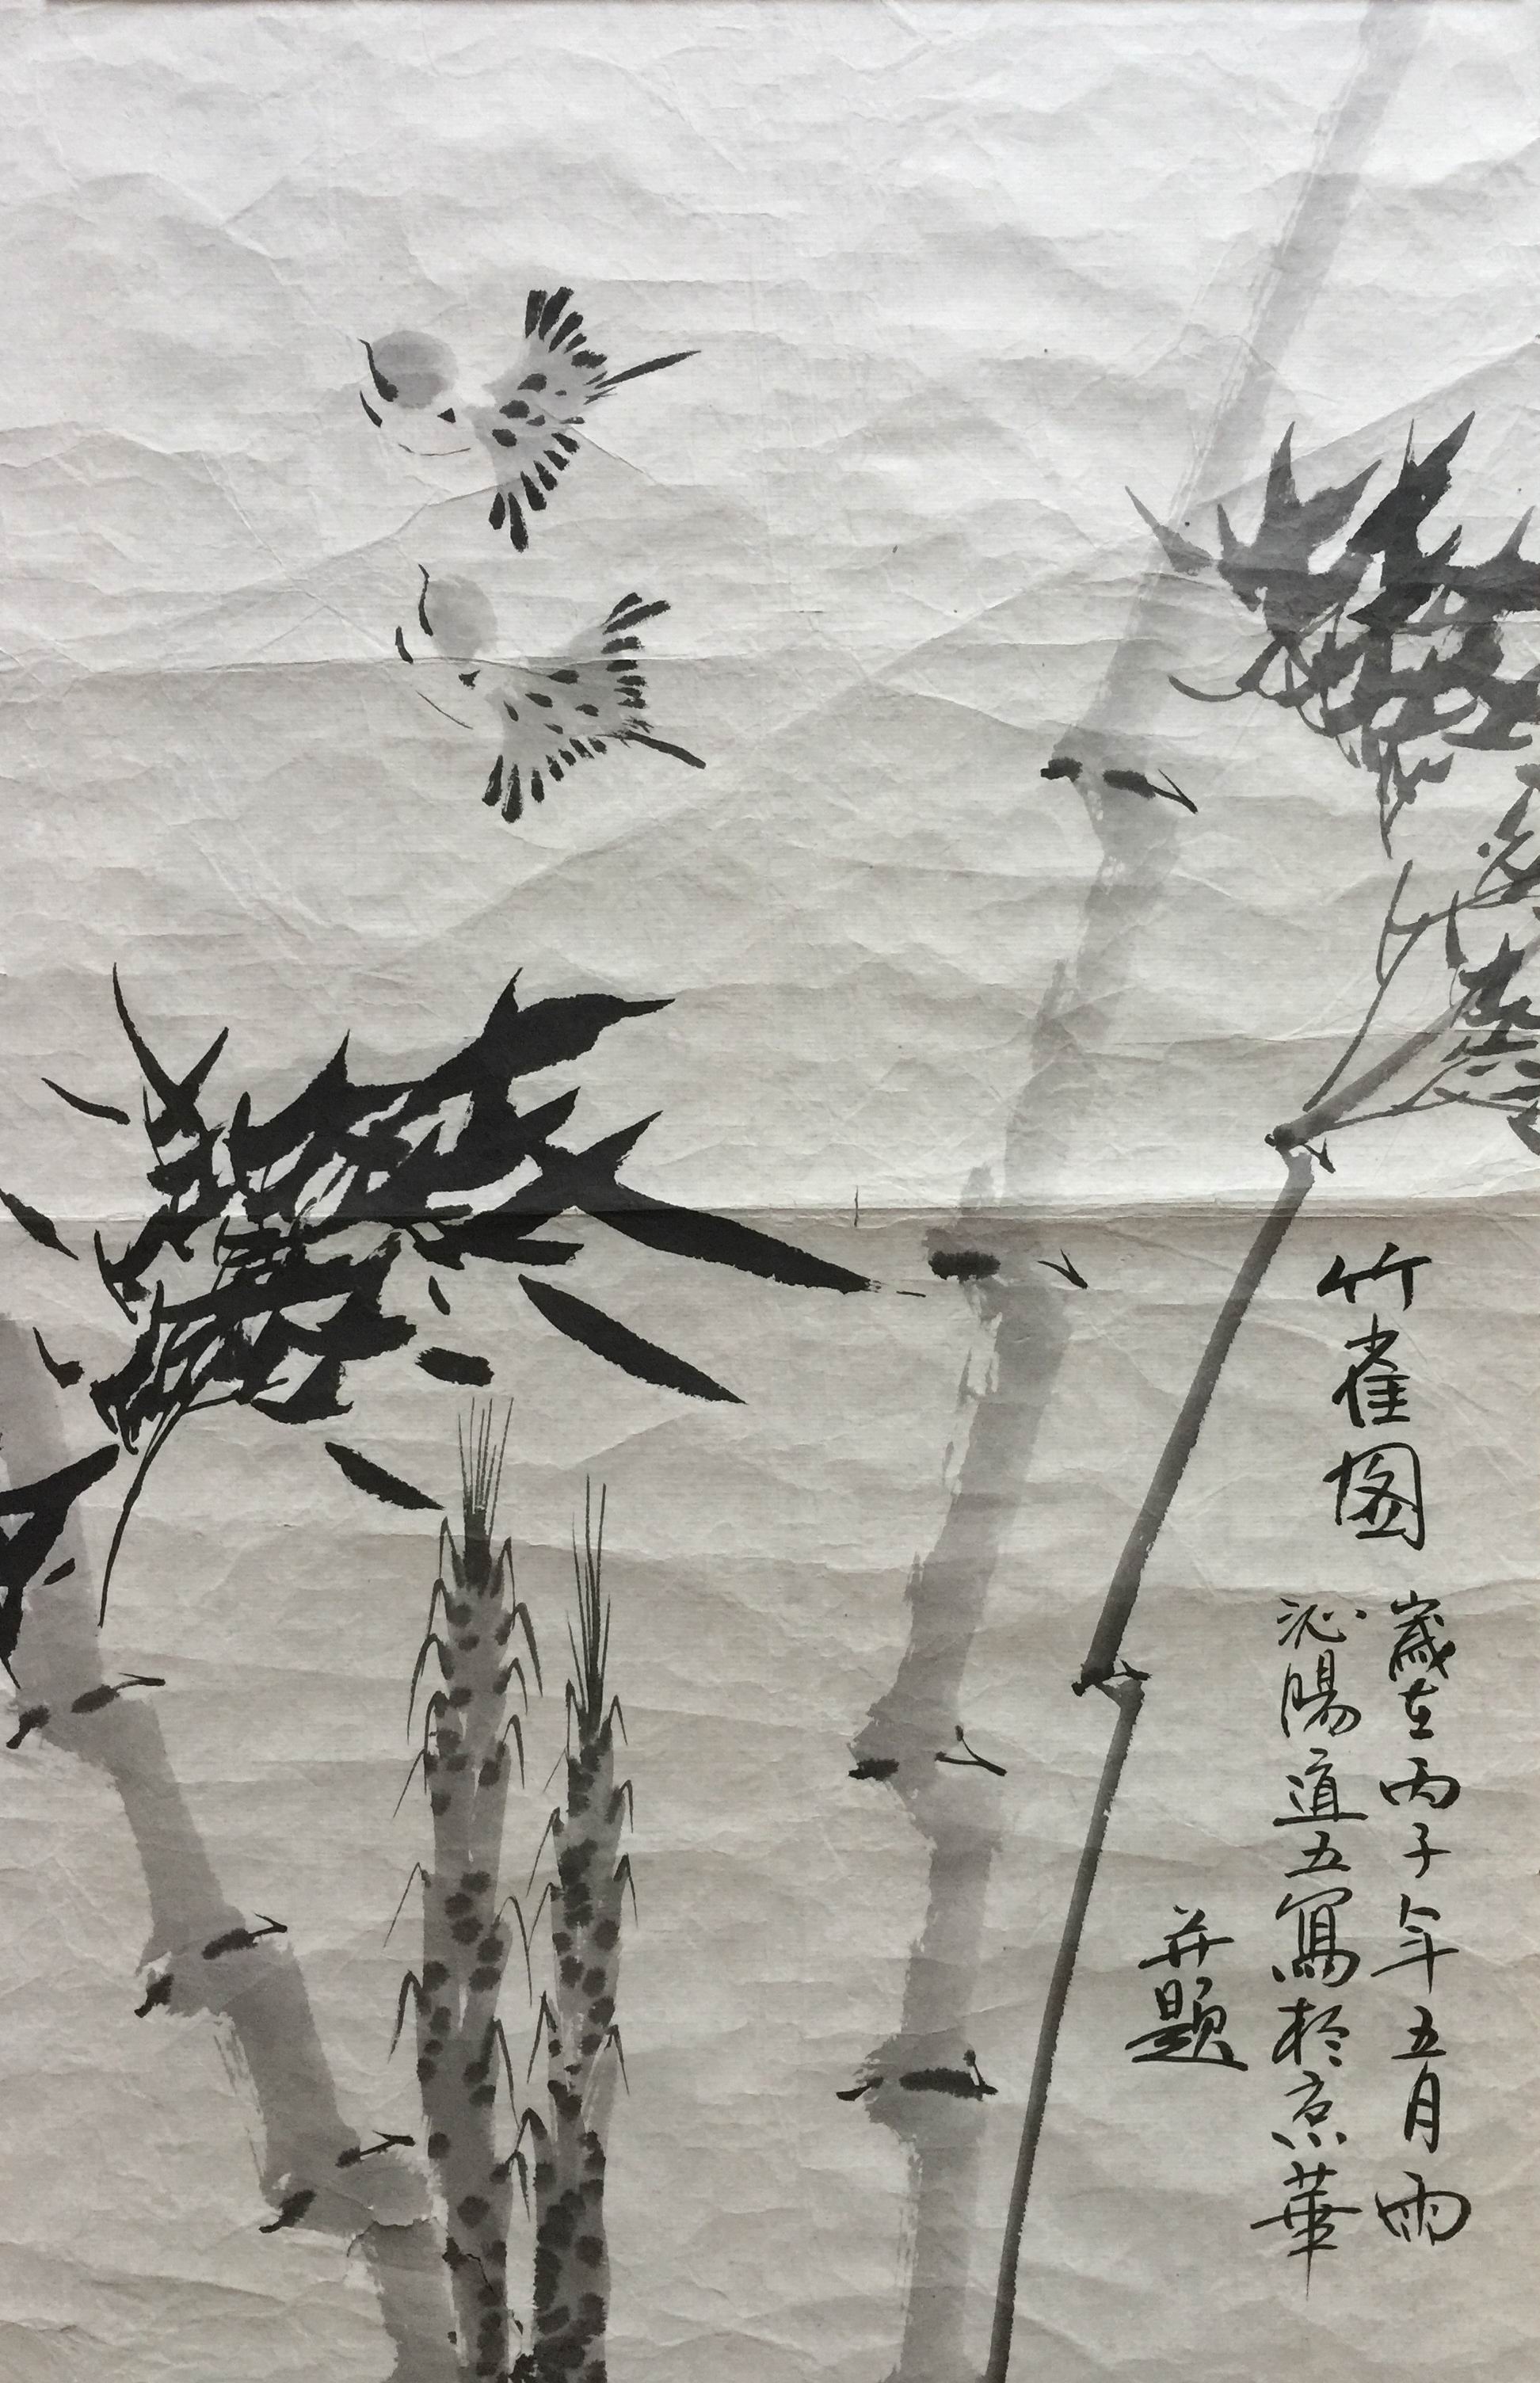 竹雀图
歲在丙子年五月雨
沁陽道五寫於京華
并題